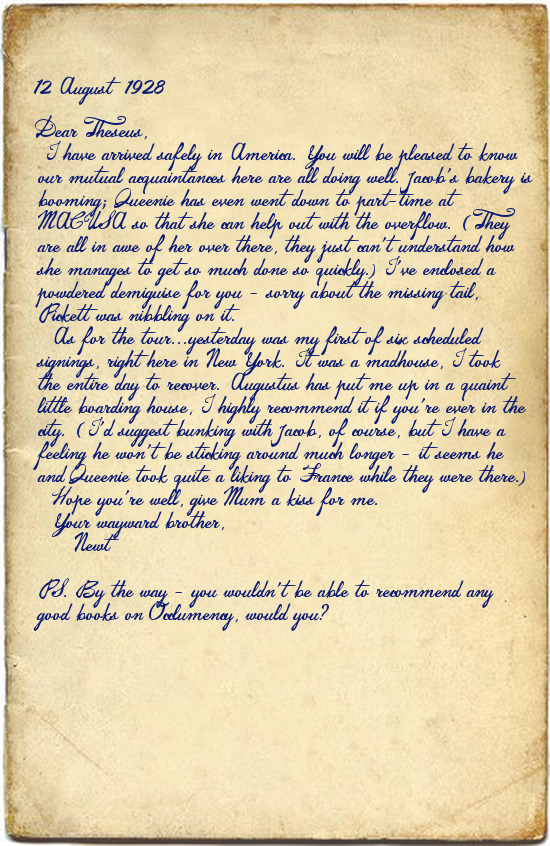 12 August 1928
Dear Theseus,
I have arrived safely in America. You will be pleased to know
our mutual acquaintances here are all doing well. Jacob's bakery is
booming; Queenie has even went down to part-time at
MACUSA so that she can help out with the overflow. (They
are all in awe of her over there, they just can't understand how
she manages to get so much done so quickly.) I've enclosed a
powdered demiguise for you - sorry about the missing tail,
Pickett was nibbling on it.
As for the tour...yesterday was my first of six scheduled
signings, right here in New York. It was a madhouse, I took
the entire day to recover. Augustus has put me up in a quaint
little boarding house, I highly recommend it if you're ever in the
city. (I'd suggest bunking with Jacob, of course, but I have a
feeling he won't be sticking around much longer - it seems he
and Queenie took quite a liking to France while they were there.)
Hope you're well, give Mum a kiss for me.
Your wayward brother,
Newt
PS. By the way - you wouldn't be able to recommend any
good books on Occlumency, would you?